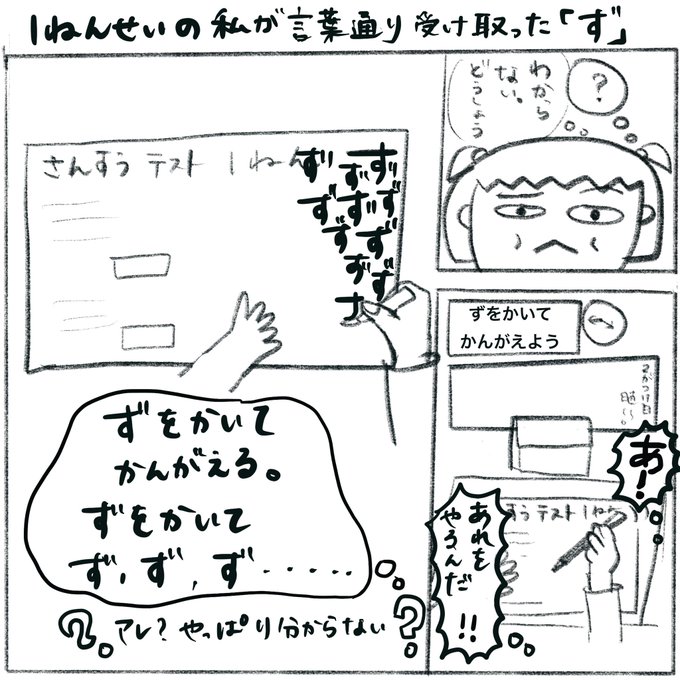 1ねんせいの私が言葉通り受け取った「ず」
?
わから
ない。
どうしよう
ずをかいて
かんがえよう
あ!
すう テスト 1ねん
あれを
やるんだ
!!
さんすう テスト 1ねん
ず ず ず
ず ず ず
ず ず
ず ず
ず
ずをかいて
かんがえる。
ずをかいて
ず,ず,ず.....
? アレ? やっぱり分からない ?